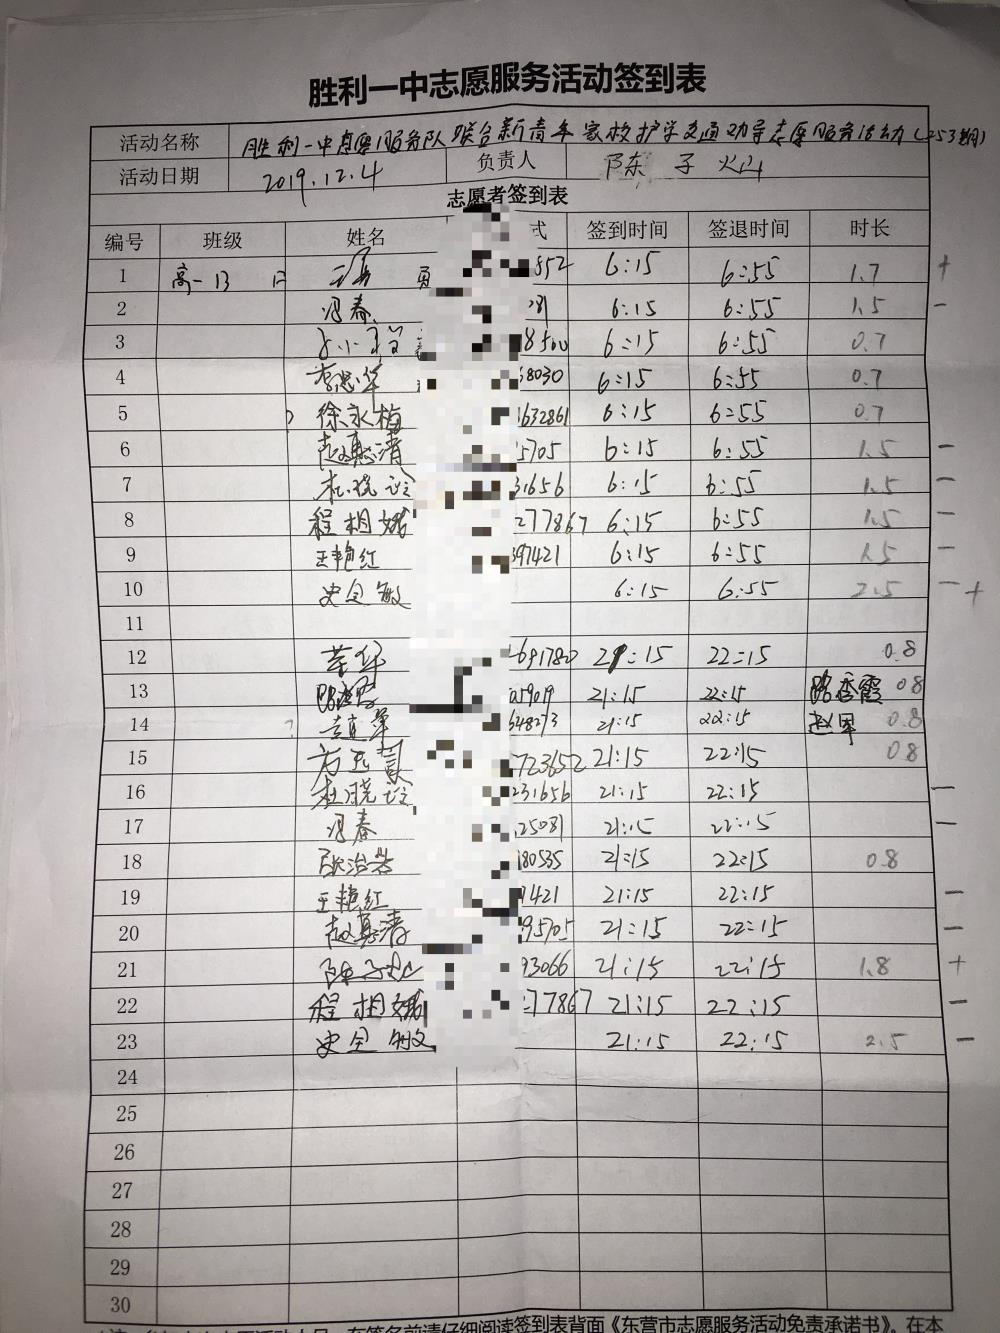 胜利一中志愿服务活动签到表
活动名称 胜利一中志愿服务队联合新青年家校护学交通劝导志愿服务活动(253期)
活动日期 2019.12.4 负责人 陈子
志愿者签到表
编号 班级 姓名 式 签到时间 签退时间 时长
1 高一13 852 6:15 6:55 1.7 +
2 冯春 281 6:15 6:55 1.5 -
3 8500 6:15 6:55 0.7
4 38030 6:15 6:55 0.7
5 徐永梅 632861 6:15 6:55 0.7
6 赵真清 5705 6:15 6:55 1.5 -
7 杜晓 31656 6:15 6:55 1.5 -
8 程相娥 277867 6:15 6:55 1.5 -
9 王艳红 397421 6:15 6:55 1.5 -
10 史全敏 6:15 6:55 2.5 - +
11
12 691780 21:15 22:15 0.8
13 059019 21:15 22:15 路秀霞 0.8
14 648273 21:15 22:15 赵军 0.8
15 723652 21:15 22:15 0.8
16 杜晓 231656 21:15 22:15 -
17 冯春 25081 21:15 22:15 -
18 180535 21:15 22:15 0.8
19 王艳红 7421 21:15 22:15 -
20 赵真清 95705 21:15 22:15 -
21 陈子 93066 21:15 22:15 1.8 +
22 程相娥 277867 21:15 22:15 -
23 史全敏 21:15 22:15 2.5 -
24
25
26
27
28
29
30
在签名前请仔细阅读签到表背面《东营市志愿服务活动免责承诺书》，在本